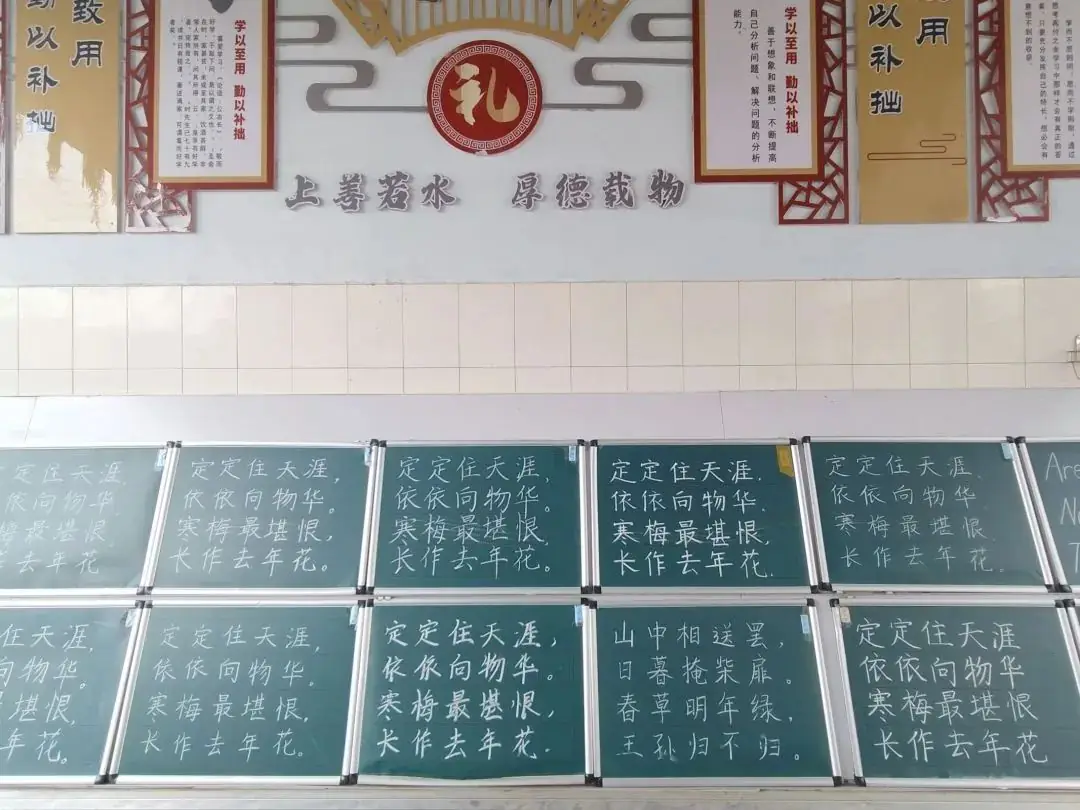 致用
以补拙
学以至用 勤以补拙
礼
学以至用 勤以补拙
善于想象和联想，不断提高
自己分析问题、解决问题的分析
能力。
用
以补拙
学而不思则罔，思而不学则殆，通过
案，只要充分发挥自己的特长，想必会有
意想不到的收获。
上善若水 厚德载物
定定住天涯，
依向物华。
梅最堪恨，
去年花
定定住天涯，
依依向物华。
寒梅最堪恨，
长作去年花。
定定住天涯，
依依向物华。
寒梅最堪恨，
长作去年花。
定定住天涯，
依依向物华.
寒梅最堪恨，
长作去年花.
定定住天涯.
依依向物华.
寒梅最堪恨.
长作去年花.
Are
N
T
住天涯，
向物华。
最堪恨，
年花。
定定住天涯，
依依向物华.
寒梅最堪恨，
长作去年花。
定定住天涯，
依依向物华。
寒梅最堪恨，
长作去年花.
山中相送罢，
日暮掩柴扉。
春草明年绿，
王孙归不归。
定定住天涯
依依向物华
寒梅最堪恨
长作去年花